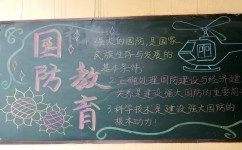 国防教育
强大的国防,是国家
民族生存与发展的
基本条件!
2.正确处理国防建设与经济建
设关系是建设强大国防的重要前
3.科学技术是建设强大国防的
根本动力!